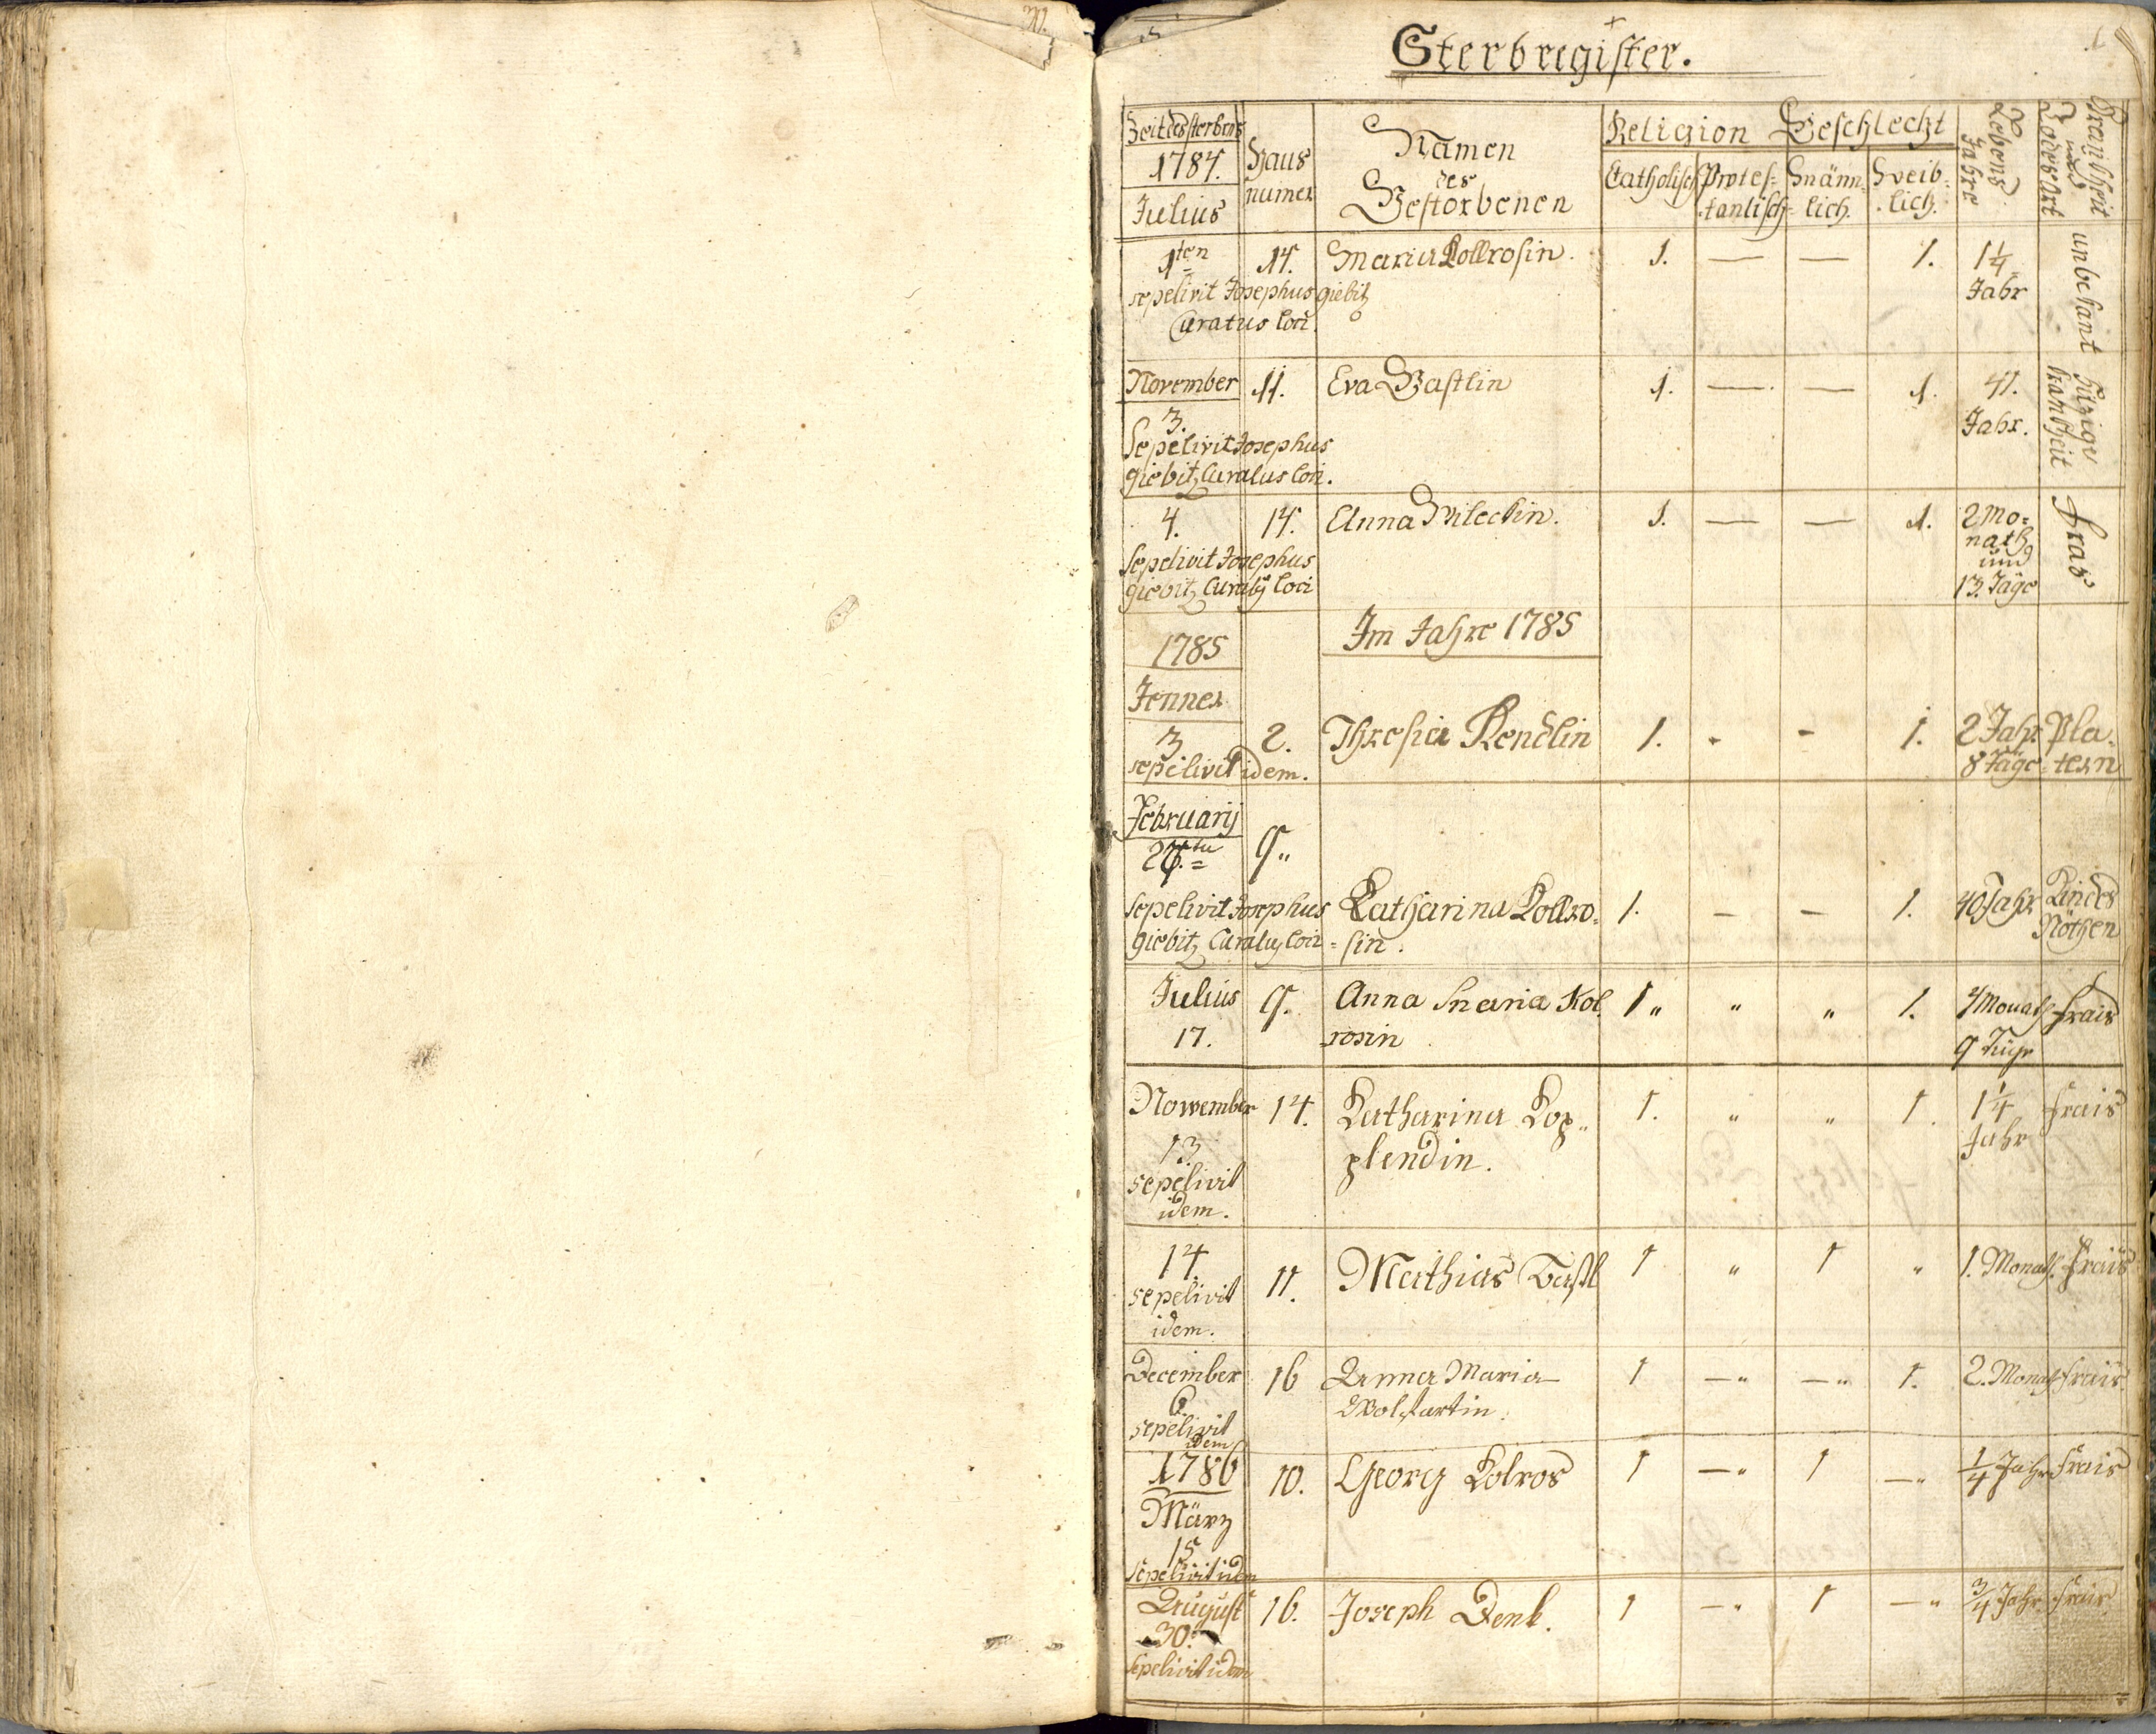 Sterbregister.
Zeit des sterbens
1784.
Julius
Haus
numer
Namen
des
Gestorbenen
Religion
Catholisch
Protes=
tantisch
Geschlecht
Männ=
lich.
Weib=
lich.
Lebens
Jahre
Krankheit
und
Todes Art
1ten 14. Maria Kollrosin. 1. — — 1. 1¼ unbekant
sepelivit Josephus giebitz Jahr
Curatus loci.
November 11. Eva Bastlin 1. — — 1. 41. hitzige
3. Jahr. krankheit
Sepelivit Josephus
giebitz Curatus loci.
4. 14. Anna 1. — — 1. 2 Mo= Frais
nath
Sepelivit Josephus und
giebitz Curatus loci 13. Täge
1785 Im Jahre 1785
Jenner
3 2. Thresia Rendlin 1. - - 1. 2 Jahr. Pla=
sepelivit idem. 8 Täge tern
Februarij
9„
Sepelivit Josephus Katharina Kollro= 1. — — 1. 40 Jahr Kindes
giebitz Curatus loci = sin. Nöthen
Julius 9. Anna Maria Kol 1 „ „ „ 1. Monath Frais
17. rosin 9 Täge
November 14. Katharina Kop„ 1. „ „ 1. 1¼ Frais
13 plendin. Jahr
sepelivit
idem.
14 11. Mathias Bastl 1 „ 1 „ 1. Monath. Frais
sepelivit
idem.
December 16 Anna Maria 1 —„ —„ 1. 2. Monath Frais
6 Wolfartin.
sepelivit
idem
1786 10. Georg Kolros 1 —„ 1 —„ ¼ Jahr Frais
März
15
sepelivit idem
August 16. Joseph Denk. 1 —„ 1 —„ ¾ Jahr Frais
30.
sepelivit idem